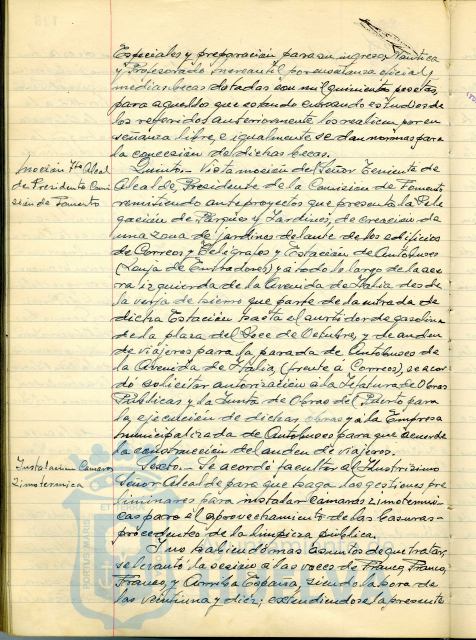 Especiales y preparación para su ingreso, Náutica
y Profesorado mercantil por enseñanza oficial y
medias becas dotadas con mil quinientas pesetas,
para aquellos que estando cursando estudios de
los referidos anteriormente los realicen por en-
señanza libre, e igualmente se dan normas para
la concesión de dichas becas.
Moción Tte Alcal
de Presidente Comi
sión de Fomento
Quinto.- Vista moción del Señor Teniente de
Alcalde, Presidente de la Comisión de Fomento
remitiendo anteproyectos que presenta la Dele
gación de Parques y Jardines, de creación de
una zona de jardines delante de los edificios
de Correos y Telégrafos y Estación de Autobuses
(Zanja de Entradores) y a todo lo largo de la ace
ra izquierda de la Avenida de Italia desde
la verja de hierro que parte de la entrada de
dicha Estación hasta el surtidor de gasolina
de la plaza del Doce de Octubre, y de anden
de viajeros para la parada de Autobuses de
la Avenida de Italia, (frente a Correos), se acor
dó solicitar autorización a la Jefatura de Obras
Públicas y la Junta de Obras del Puerto para
la ejecución de dichas obras y a la Empresa
municipalizada de Autobuses para que acuerde
la construcción del anden de viajeros.
Instalación Camaras
Zimotermica
Sexto.- Se acordó facultar al Ilustrísimo
Señor Alcalde para que haga las gestiones pre
liminares para instalar camaras zimotermi-
cas para el aprovechamiento de las basuras-
procedentes de la limpieza pública.
Y no habiendo mas asuntos de que tratar,
se levantó la sesión a las voces de Franco, Franco,
Franco, y Arriba España, siendo la hora de
las veintiuna y diez; extendiendose la presente